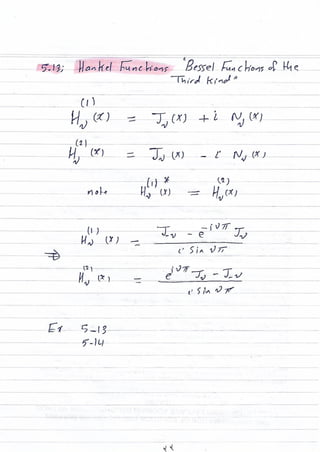 5-13; Hankel Functions "Bessel Functions of the
Third Kind"
H_ν^(1)(x) = J_ν(x) + i N_ν(x)
H_ν^(2)(x) = J_ν(x) - i N_ν(x)
note H_ν^(1)*(x) = H_ν^(2)(x)
⇒ H_ν^(1)(x) = (J_-ν - e^(-iνπ) J_ν) / (i sin νπ)
H_ν^(2)(x) = (e^(iνπ) J_ν - J_-ν) / (i sin νπ)
Ex 5-13
5-14